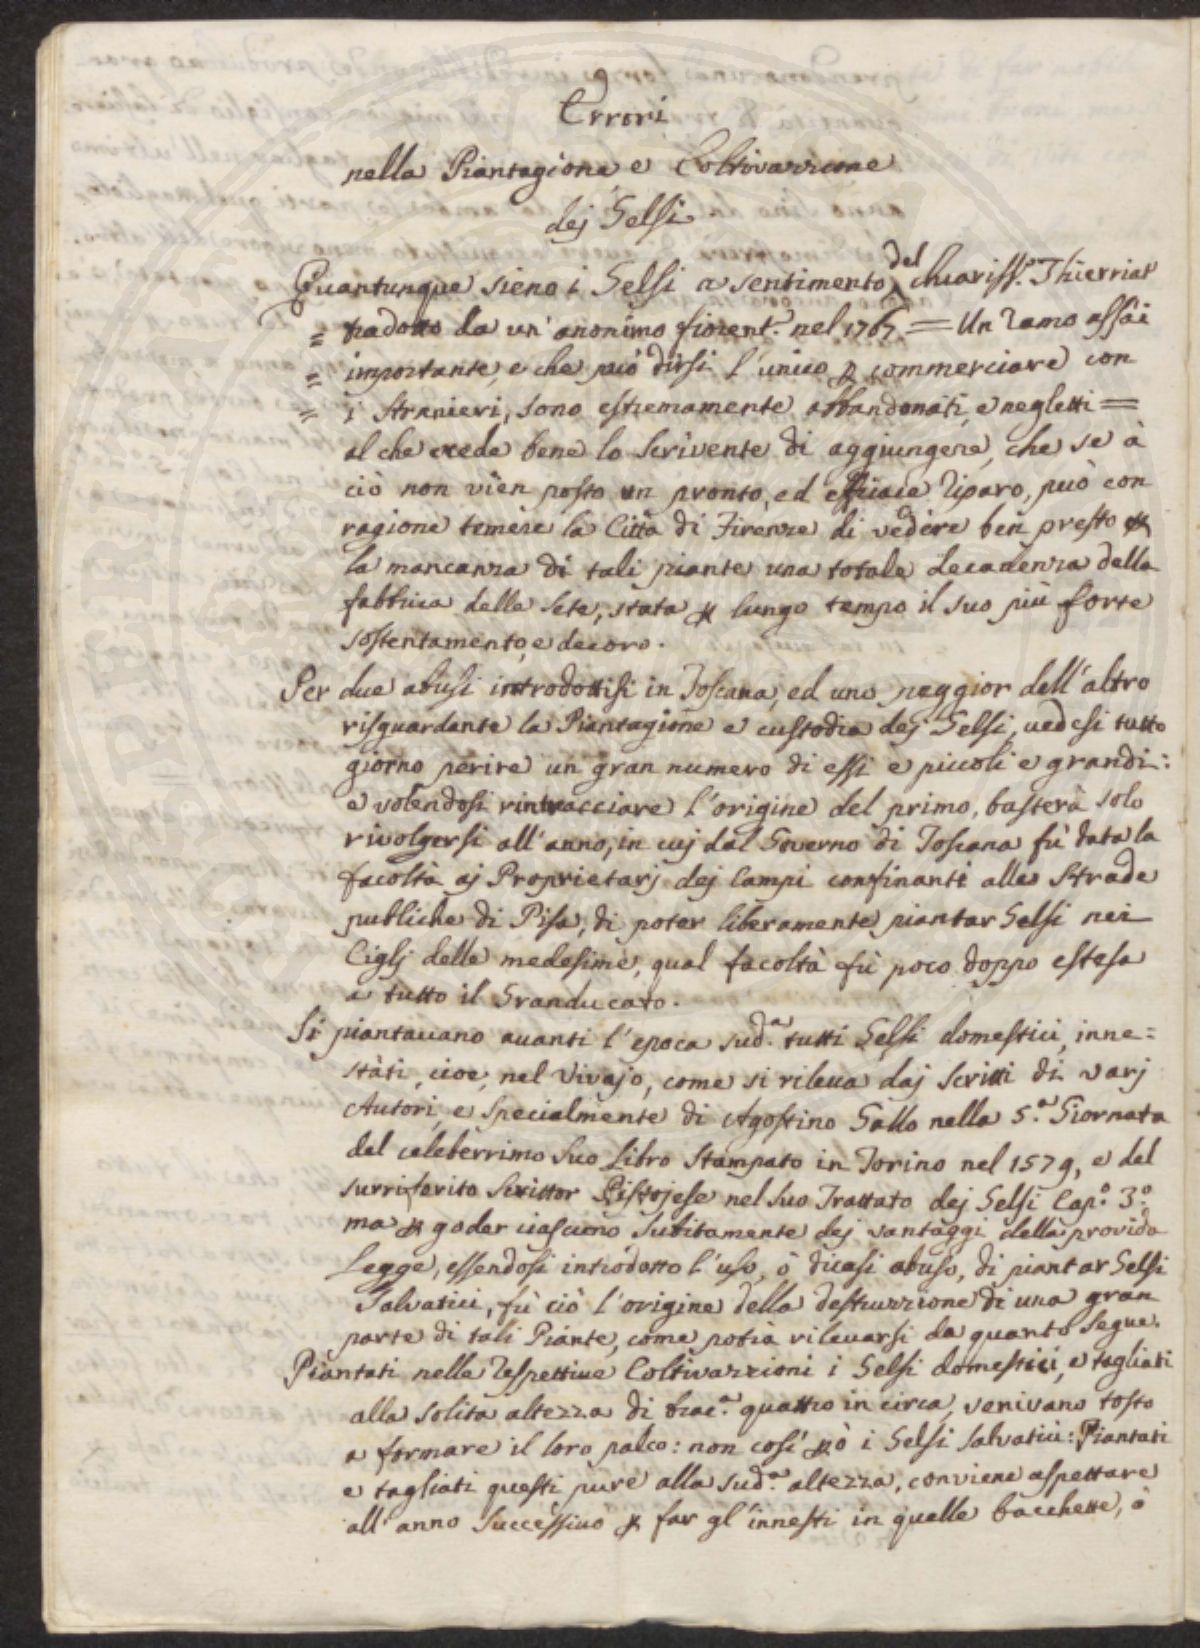 9
Errori
nella Piantagione e Coltivazzione
dej Gelsi
Quantunque sieno i Gelsi a sentimento del chiariss.º Thierriat
= tradotto da un' anonimo fiorent.º nel 1767 = Un ramo assai
= importante, e che può dirsi l'unico p commerciare con
= i stranieri, sono estremamente abbandonati, e negletti =
al che crede bene lo scrivente di aggiungere, che se à
ciò non vien posto un pronto, ed efficace riparo, può con
ragione temere la Città di Firenze di vedere ben presto p
la mancanza di tali piante una totale decadenza della
fabbrica delle sete, stata p lungo tempo il suo più forte
sostentamento, e decoro.
Per due abusi introdottisi in Toscana, ed uno peggior dell'altro
risguardante la Piantagione e custodia dej Gelsi, vedesi tutto
giorno perire un gran numero di essi e piccoli e grandi:
e volendosi rintracciare l'origine del primo, basterà solo
rivolgersi all'anno, in cuj dal Governo di Toscana fù data la
facoltà aj Proprietarj dej Campi confinanti alle Strade
publiche di Pisa, di poter liberamente piantar Gelsi nei
Ciglj delle medesime, qual facoltà fù poco doppo estesa
a tutto il Granducato.
Si piantavano avanti l'epoca sud.ª tutti Gelsi domestici, inne=
stàti, cioe, nel Vivajo, come si rileva daj scritti di varj
Autori, e specialmente di Agostino Gallo nella 5.ª Giornata
del celeberrimo suo Libro stampato in Torino nel 1579, e del
surriferito scrittor Pistojese nel suo Trattato dej Gelsi Cap.º 3.º
ma p goder ciascuno subitamente dej vantaggi della provida
Legge, essendosi introdotto l'uso, ò dicasi abuso, di piantar Gelsi
Salvatici, fù ciò l'origine della destruzzione di una gran
parte di tali Piante, come potrà rilevarsi da quanto segue.
Piantati nelle respettive Coltivazzioni i Gelsi domestici, e tagliati
alla solita altezza di brac.ª quattro in circa, venivano tosto
a formare il loro palco: non così pò i Gelsi salvatici: Piantati
e tagliati questi pure alla sud.ª altezza, conviene aspettare
all'anno successivo p far gl'innesti in quelle bacchette, ò